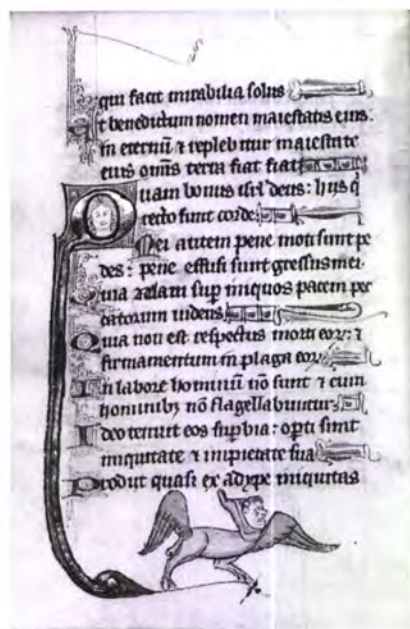 qui facit mirabilia solus
Et benedictum nomen maiestatis eius:
in eternū ⁊ replebitur maiestate
eius om̄is terra fiat fiat
Quam bonus isrł deus: hijs q̄
recto sunt corde
Mei autem pene moti sunt pe
des: pene effusi sunt gressus mei.
Quia zelaui sup iniquos pacem pec
catorum uidens
Quia non est respectus morti eoꝝ: ⁊
firmamentum in plaga eoꝝ
In labore hominū nō sunt ⁊ cum
hominibꝫ nō flagellabuntur
Ideo tenuit eos supbia: opti sunt
iniquitate ⁊ impietate sua
Prodijt quasi ex adype iniquitas